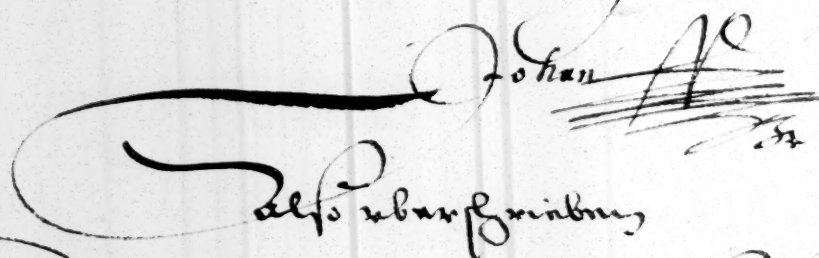 Johan
also vberschrieben